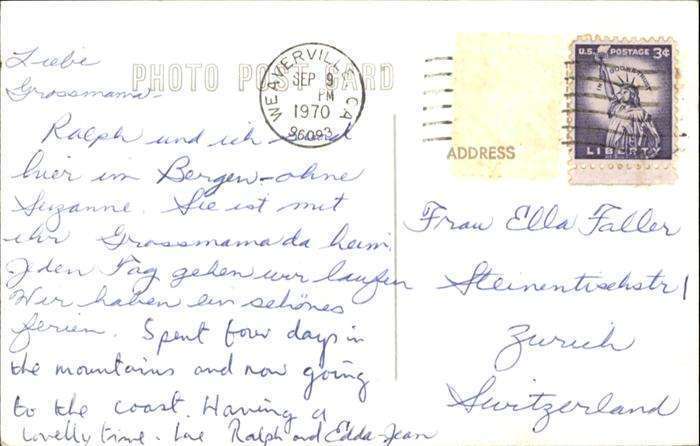 Liebe
Grossmama-
PHOTO POST CARD
Ralph und ich sind
hier im Bergen-ohne
Suzanne. Sie ist mit
ihr Grossmama da heim.
Jeden Tag gehen wir laufen
Wir haben ein schönes
ferien. Spent four days in
the mountains and now going
to the coast. Having a
lovelly time. Love Ralph and Edda-Jean
WEAVERVILLE, CA
SEP 9
PM
1970
96093
U.S. POSTAGE 3¢
IN GOD WE TRUST
LIBERTY
ADDRESS
Frau Ella Faller
Steinentischstr 1
Zurich
Switzerland